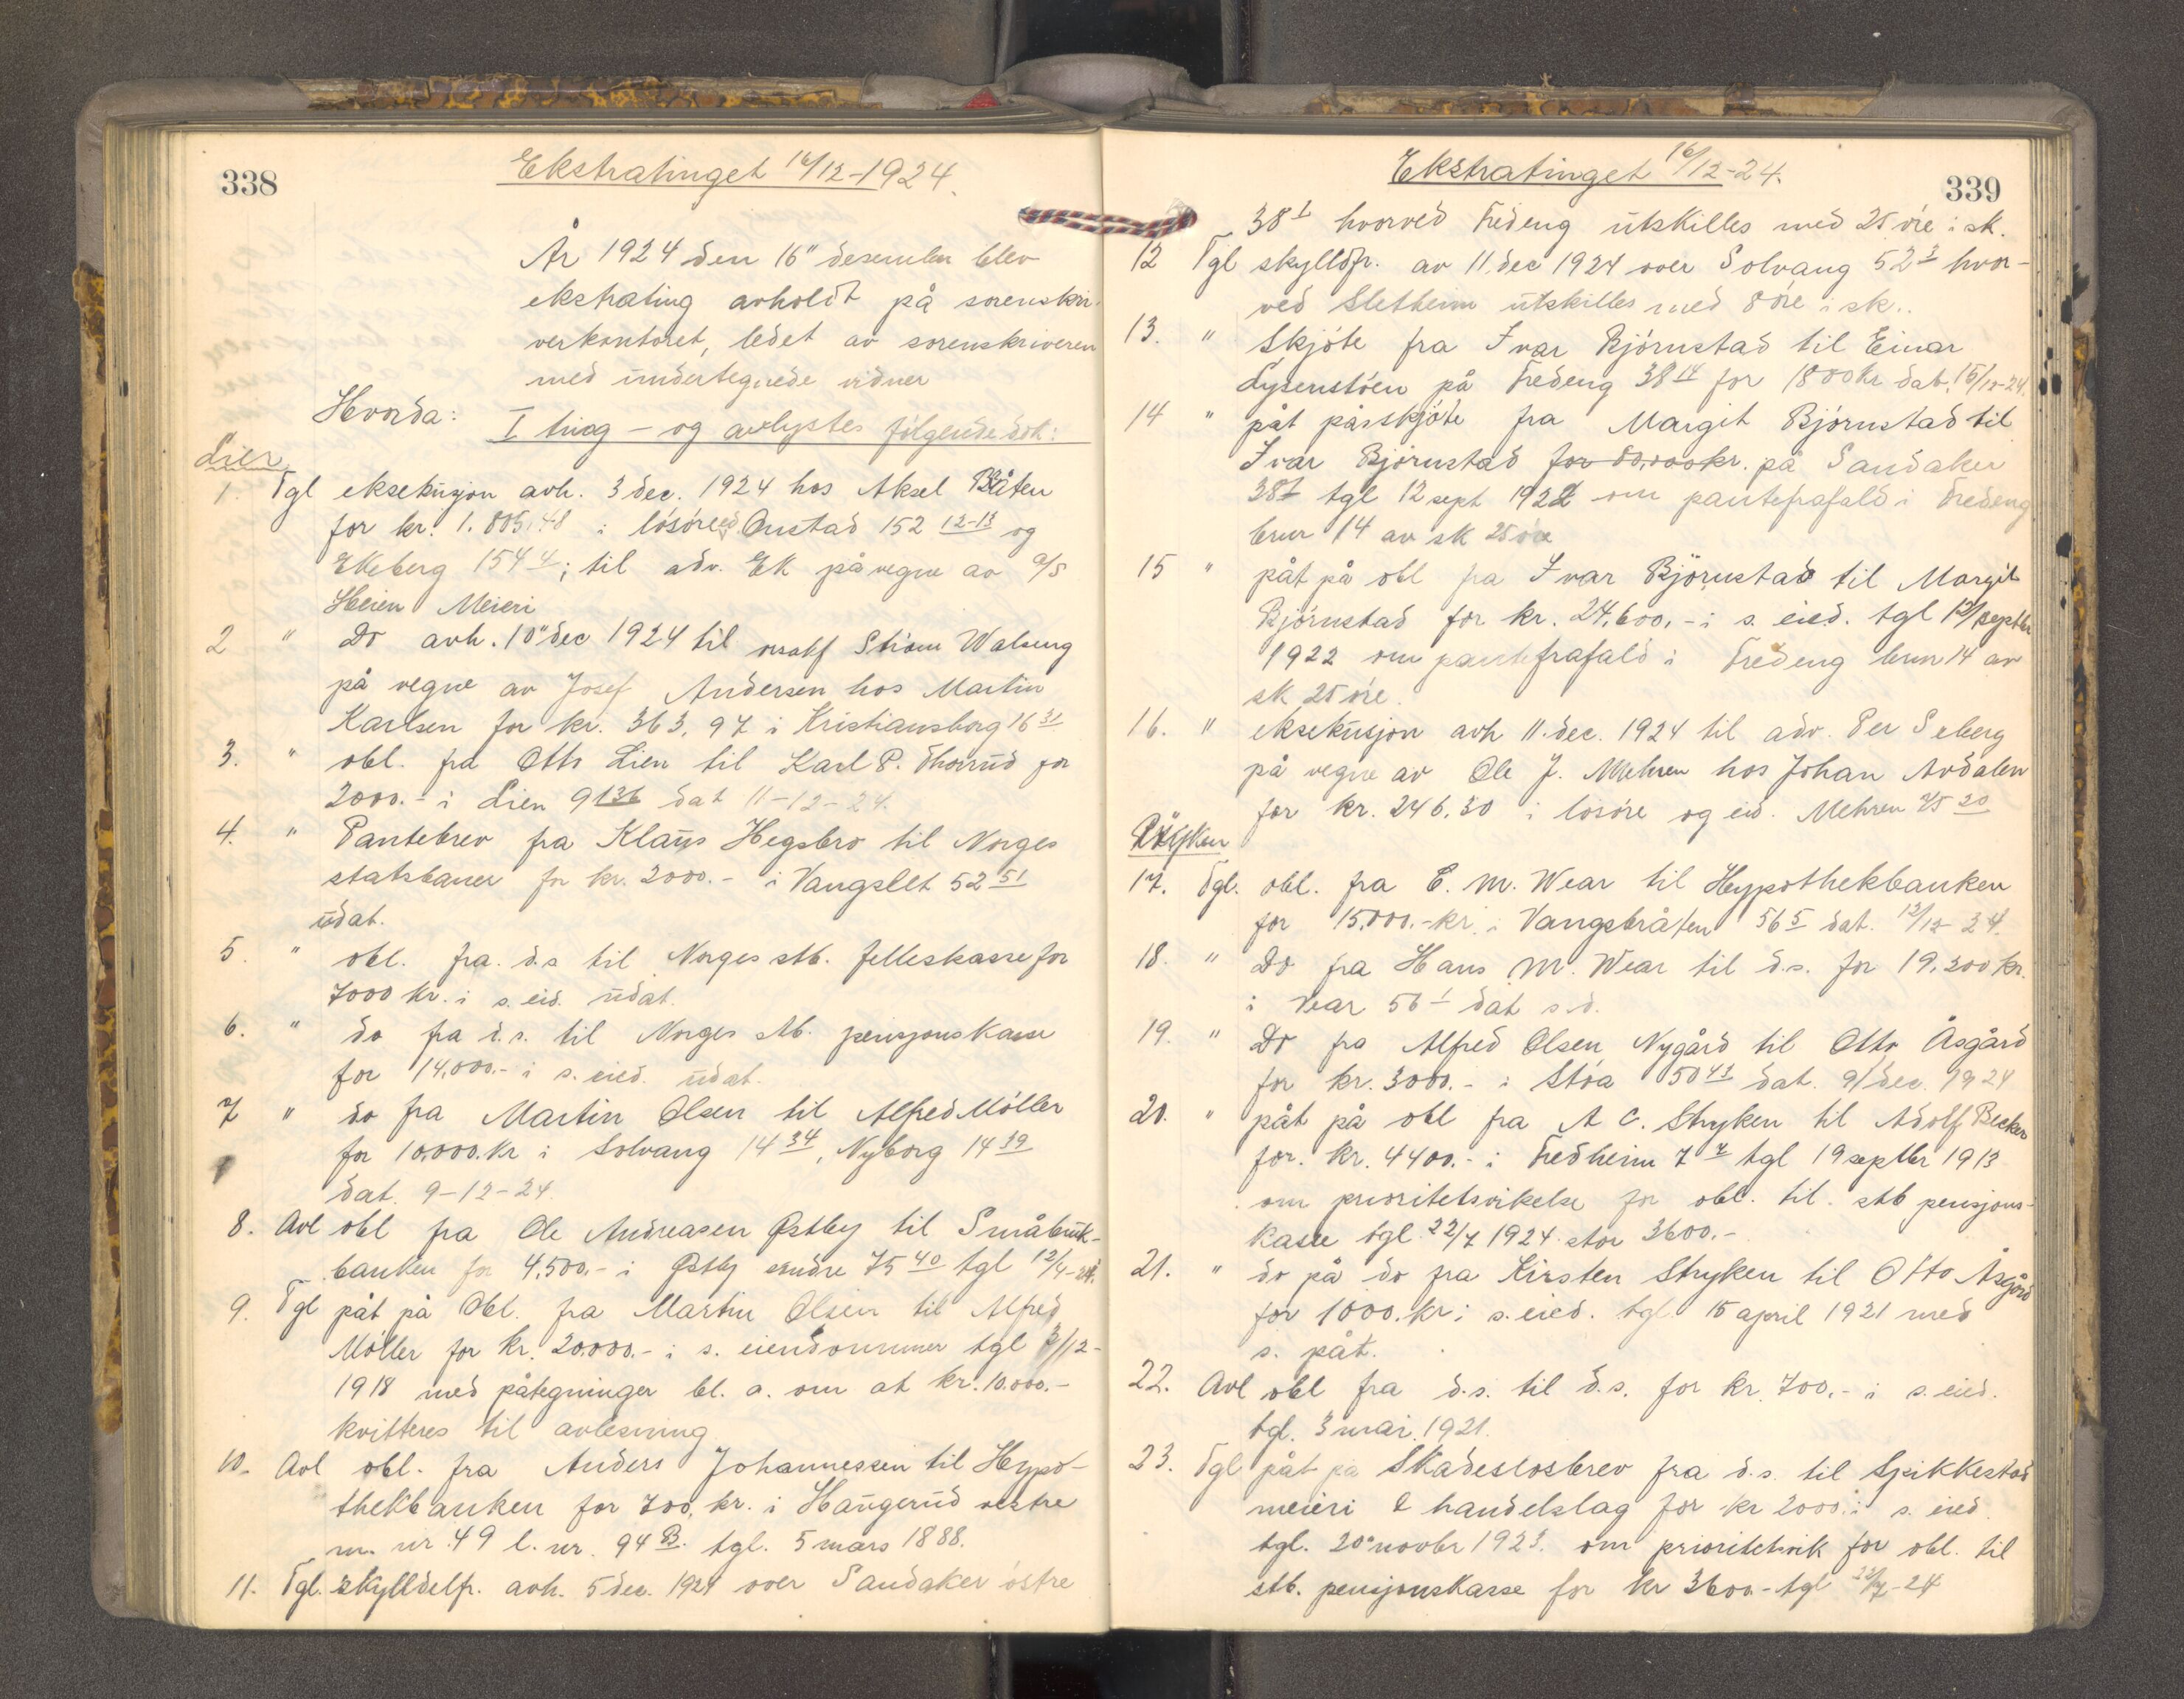 338
Ekstratinget 16/12-1924.
År 1924 den 16" desember blev
ekstrating avholdt på sorenskri-
verkontoret, ledet av sorenskriveren
med undertegnede vidner
Hvorda: I ting - og avlystes følgende dok:
Lier
1. Tgl eksekusjon avh. 3 dec. 1924 hos Aksel Bråten
for kr. 1.805,48 i løsøre og Onstad 152 12-13 og
Ekeberg 154 4; til adv. Ek på vegne av a/s
Heien Meieri
2 " Do avh. 10" dec 1924 til orsakf Strøm Walseng
på vegne av Josef Andersen hos Martin
Karlsen for kr. 363,97 i Kristiansborg 16 31
3. " obl. fra Otto Lien til Karl P. Thorrud for
2000.- i Lien 91 36 dat 11-12-24.
4. " Pantebrev fra Klaus Hegsbro til Norges
statsbaner for kr. 2000.- i Vangslet 52 51
udat.
5. " obl. fra d.s til Norges stb. felleskasse for
7000 kr. i s. eid. udat.
6. " do fra d.s. til Norges stb. pensjonskasse
for 14,000.- i s. eied. udat.
7 " do fra Martin Olsen til Alfred Møller
for 10,000.kr i Solvang 14 34, Nyborg 14 39
dat. 9-12-24.
8. Avl obl fra Ole Andreasen Østby til Småbruk-
banken for 4,500.- i Østby søndre 75 40 tgl 12/4-24.
9. Tgl påt på Obl. fra Martin Olsen til Alfred
Møller for kr. 20,000.- i s. eiendommer tgl 3/12-
1918 med påtegninger bl. a. om at kr. 10.000.-
kvitteres til avlesning
10. Avl obl. fra Anders Johannessen til Hypo-
thekbanken for 700, kr. i Haugerud vestre
m. nr. 49 l. nr. 94 B. tgl. 5 mars 1888.
11. Tgl. skylddelfr. avh. 5 dec. 1924 over Sandaker østre
339
Ekstratinget 16/12-24.
38 1 hvorved Fredeng utskilles med 25 øre i sk.
12 Tgl skylldfr. av 11 dec 1924 over Solvang 52 3 hvor-
ved Sletheim utskilles med 8 øre i sk.
13. " Skjøte fra Ivar Bjørnstad til Einar
Lysenstøen på Fredeng 38 14 for 1800 kr dat. 15/12-24.
14 " påt på skjøte fra Margit Bjørnstad til
Ivar Bjørnstad for 80,000 kr. på Sandaker
38 1 tgl 12 sept 1922 om pantefrafald i Fredeng
brnr 14 av sk 25 øre
15 " påt på obl fra Ivar Bjørnstad til Margit
Bjørnstad for kr. 24,600.- i s. eied. tgl 12/septbr
1922 om pantefrafald i Fredeng brnr 14 av
sk 25 øre.
16. " eksekusjon avh 11. dec. 1924 til adv. Per Seberg
på vegne av Ole J. Mehren hos Johan Avdalen
for kr. 246,30 i løsøre og eid. Mehren 75 20
Røyken
17. Tgl. obl. fra E. M. Wear til Hypothekbanken
for 15,000.-kr. i Vangsbråten 56 5 dat. 12/12-24.
18. " Do fra Hans M. Wear til d.s. for 19,200 kr.
i Vear 56 1 dat s.d.
19. " Do fra Alfred Olsen Nygård til Otto Åsgård
for kr. 3000.- i Støa 50 43 dat. 9/dec. 1924
20. " påt på obl fra A C. Stryken til Adolf Becker
for. kr. 4400.- i Fredheim 7 7 tgl 19 septbr 1913
om prioritetsvikelse for obl. til stb pensjons-
kasse tgl 22/7 1924 stor 3600.-
21. " do på do fra Kirsten Stryken til Otto Åsgård
for 1000. kr i s. eied. tgl. 15 april 1921 med
s. påt.
22. Avl obl fra d.s. til d.s. for kr. 700.- i s. eied.
tgl. 3 mai 1921.
23. Tgl påt på Skadesløsbrev fra d.s. til Spikkestad
meieri & handelslag for kr 2000. i s. eied.
tgl. 20" novbr 1923. om prioritetsvik for obl. til
stb. pensjonskasse for kr 3600.- tgl 22/7-24